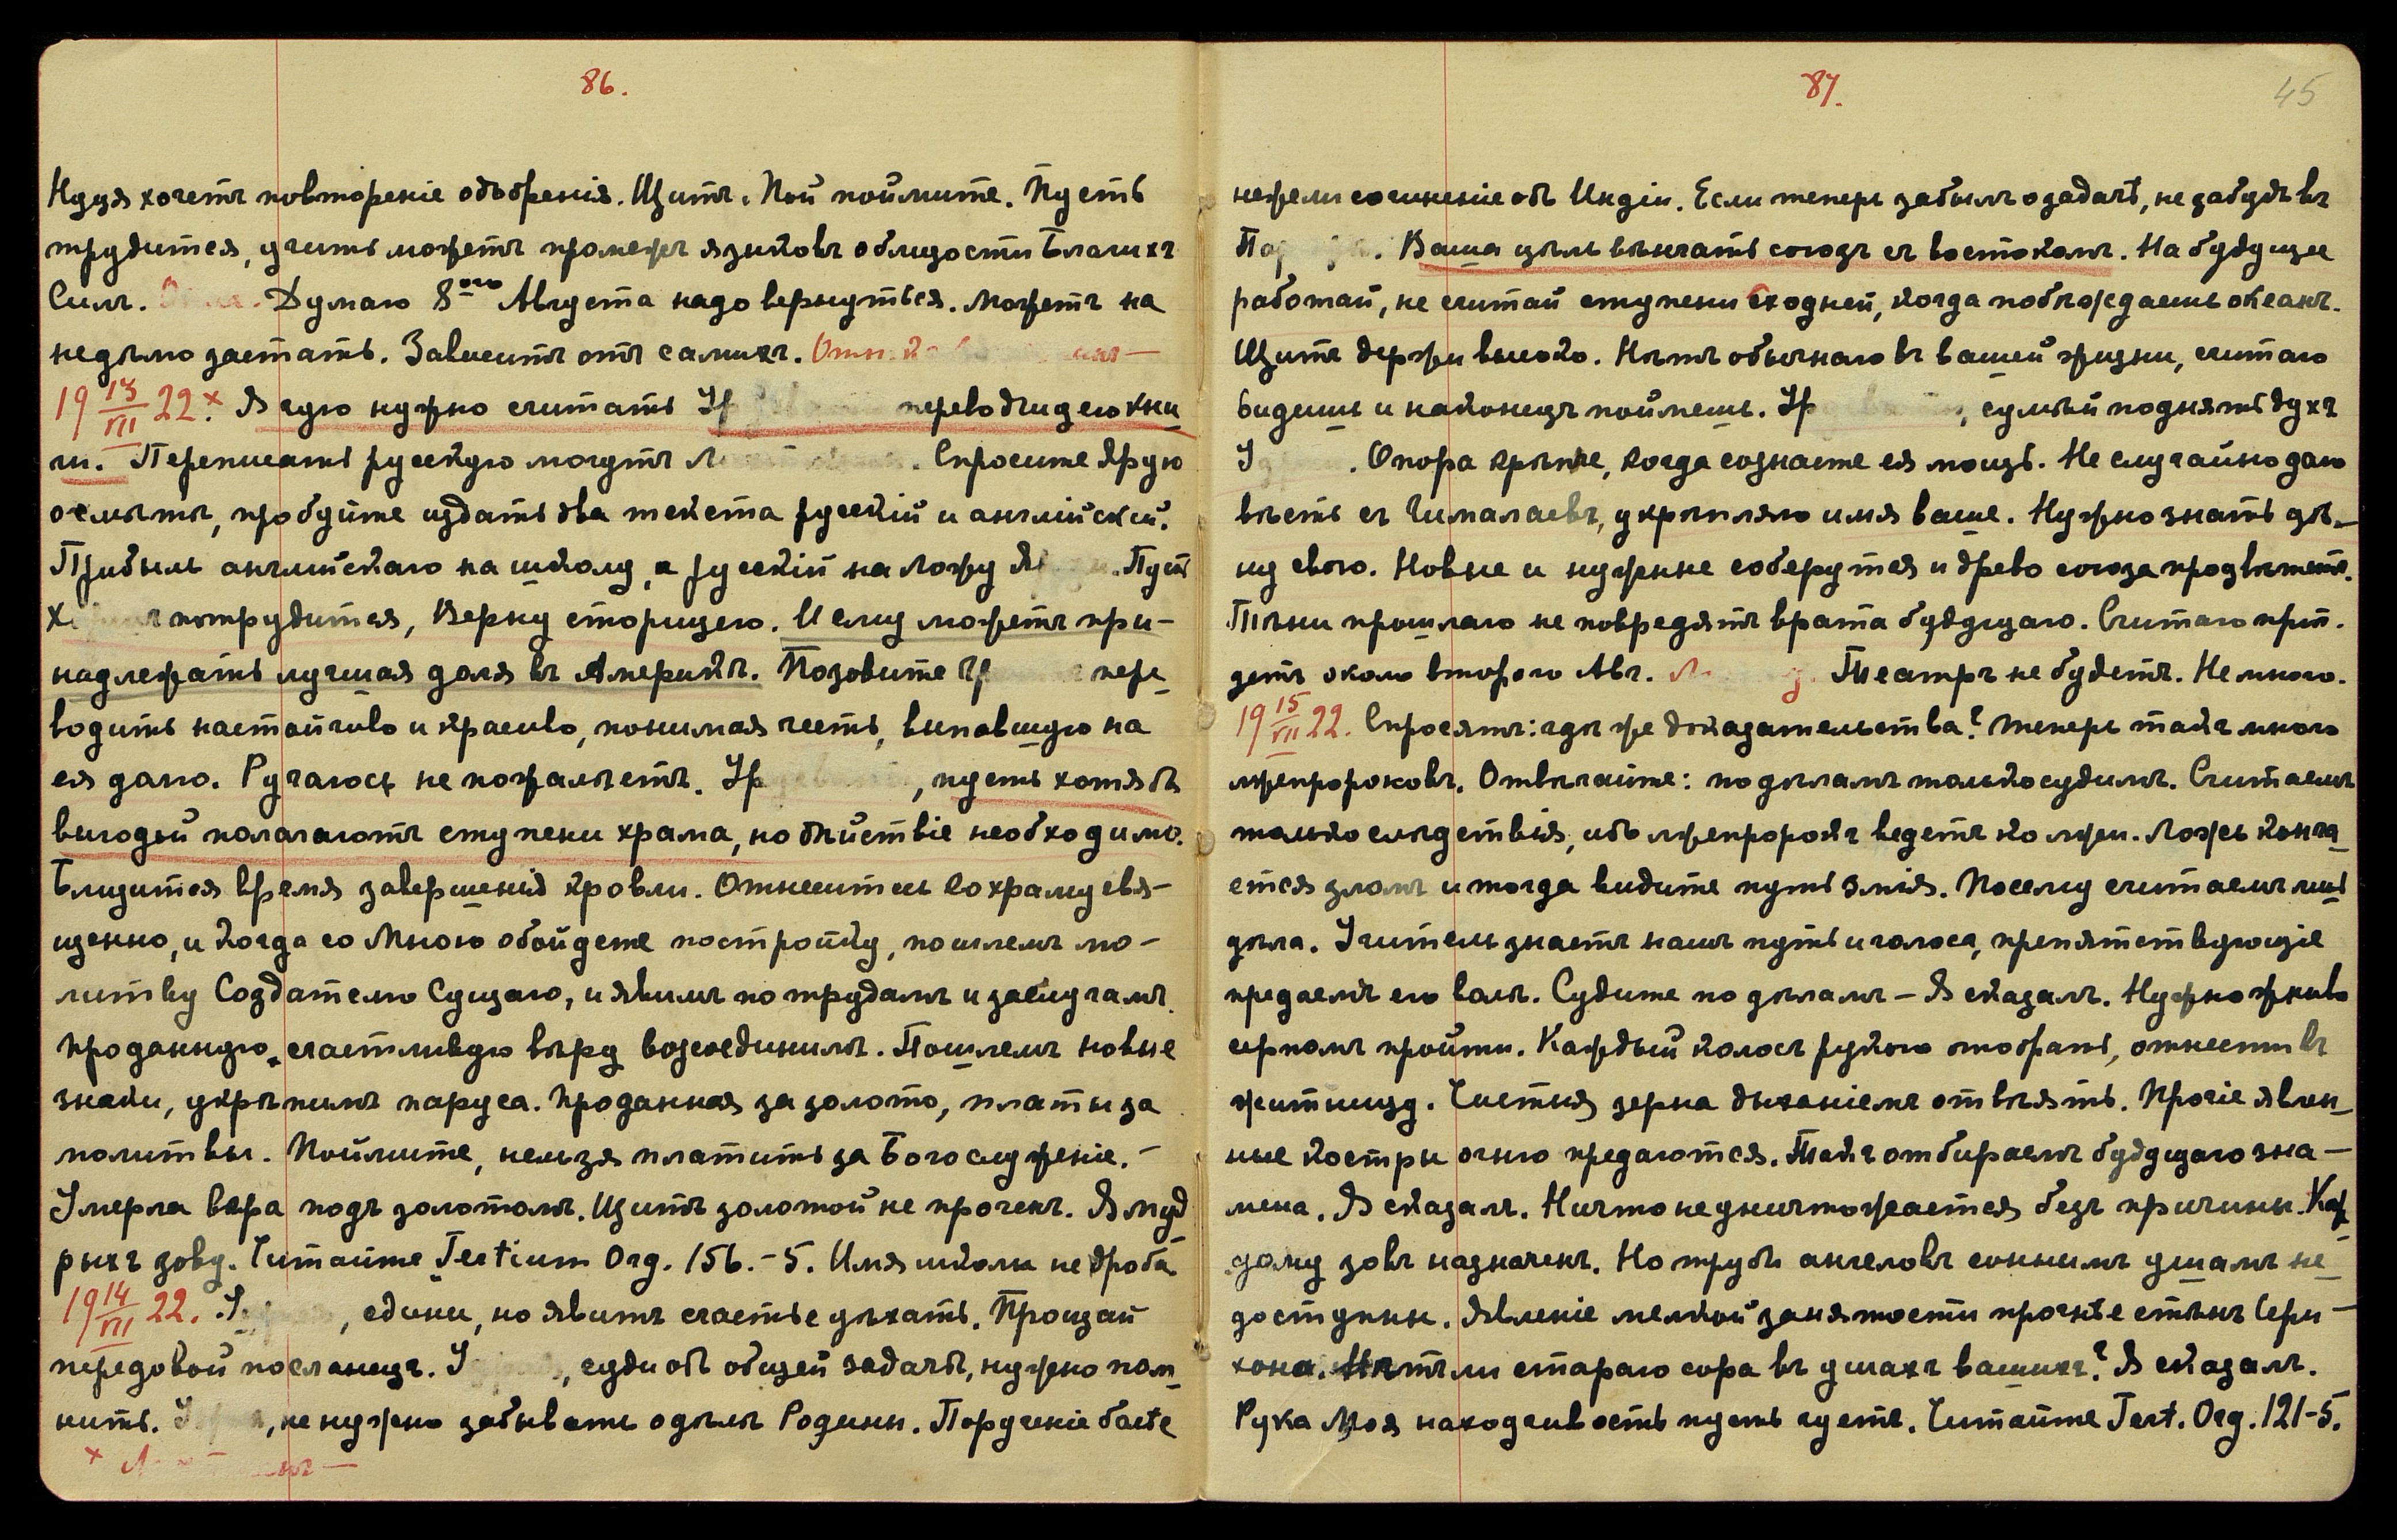 86.
Нуця хочетъ повтореніе одобренія. Щитъ. Пой поймите. Пусть
трудится, учить можетъ промежъ языковъ общности Благихъ
Силъ. Думаю 8ого Августа надо вернуться. Можетъ на
недѣлю застать. Зависитъ отъ самихъ.
19 13/VII 22.× Я чую нужно считать переводчицею кни
ги. Переписать русскую могутъ Спросите Друю
о смѣтѣ, пробуйте издать два текста русскій и англійскій.
Прибыль англійскаго на школу, а русскій на Ложу Пусть
потрудится, Верну сторицею. И ему можетъ при-
надлежать лучшая доля въ Америкѣ. Позовите пере
водить настойчиво и красиво, понимая честь, выпавшую на
ея долю. Ручаюсь не пожалѣетъ. , пусть хотя бы
выгодой полагаютъ ступени храма, но дѣйствіе необходимо.
Близится время завершенія кровли. Отнеситесь ко храму свя-
щенно, и когда со Мною обойдете постройку, пошлемъ мо-
литву Создателю Сущаго, и явимъ по трудамъ и заслугамъ.
Проданную, счастливую вѣру возсоединимъ. Пошлемъ новые
знаки, укрѣпимъ паруса. Проданная за золото, платы за
молитвы. Поймите, нельзя платить за Богослуженіе. –
Умерла вѣра подъ золотомъ. Щитъ золотой не проченъ. Я муд
рыхъ зову. Читайте Tertium Org. 156.-5. Имя школы не дроба
19 14/VII 22. , едины, но явитъ счастье уѣхать. Прощай
передовой посланецъ. , суди объ общей задачѣ, нужно пом
нить. , не нужно забывать о дѣлѣ Родины. Порученіе болѣе
×
87.
45
нежели сочиненіе объ Индіи. Если теперь забылъ о задачѣ, не забудь въ
Ваша цѣль вѣнчать союзъ съ востокомъ. На будущее
работай, не считай ступени сходней, когда побѣждаешь океанъ.
Щитъ держи высоко. Нѣтъ обычнаго въ вашей жизни, считаю
видишь и наконецъ поймешь. , сумѣй поднять духъ
Опора крѣпче, когда сознаете ея мощь. Не случайно даю
вѣсть съ Гималаевъ, укрѣпляю имя ваше. Нужно знать цѣ-
ну свою. Новые и нужные соберутся и древо союза процвѣтетъ.
Тѣни прошлаго не повредятъ врата будущаго. Считаю прі-
детъ около второго Авг. Театръ не будетъ. Не много.
19 15/VII 22. Спросятъ: гдѣ же доказательства? Теперь такъ много
лжепророковъ. Отвѣчайте: по дѣламъ только судимъ. Считаемъ
только слѣдствія, ибо лжепророкъ ведетъ ко лжи. Ложь конча
ется зломъ и тогда видите путь змія. Посему считаемъ лишь
дѣла. Учитель знаетъ нашъ путь и голоса, препятствующіе
предаемъ его волѣ. Судите по дѣламъ – Я сказалъ. Нужно жниво
серпомъ пройти. Каждый колосъ рукою отобрать, отнести въ
житницу. Чистыя зерна дыханіемъ отвѣять. Прочіе явлен
ные костры огню предаются. Такъ отбираемъ будущаго зна –
мена. Я сказалъ. Ничто не уничтожается безъ причины. Каж
дому зовъ назначенъ. Но трубы ангеловъ соннымъ ушамъ не
доступны. Явленіе мелкой занятости прочнѣе стѣнъ Іери –
хона. Нѣтъ ли стараго сора въ ушахъ вашихъ? Я сказалъ.
Рука Моя находчивость пусть чуетъ. Читайте Tert. Org. 121-5.